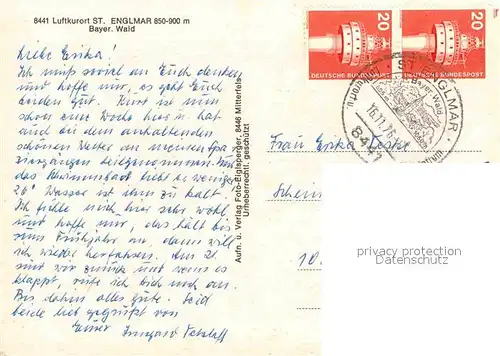 8441 Luftkurort ST. ENGLMAR 850-900 m
Bayer. Wald
Liebe Erika!
Ich muß soviel an Euch denken
und hoffe nur, es geht Euch
beiden gut. Kurt ist nun
schon eine Woche hier u. hat
auch bei dem anhaltenden
schönen Wetter an
teilgenommen. Nur
das Schwimmbad hat weniger
20° Wasser ist ihm zu kalt
Ich fühle mich hier sehr wohl
und hoffe nur, das hält bis
zum Frühjahr an, dann will
ich wieder herfahren. Am 21.
sind wir zurück und wenn es
klappt, rufe ich Dich mal an.
Bis dahin alles gute. Seid
beide lieb gegrüßt von
Eurer Irmgard
Aufn. u. Verlag Foto-Biglsperger, 8446 Mitterfels
Urheberrechtl. geschützt
20
20
DEUTSCHE BUNDESPOST
DEUTSCHE BUNDESPOST
ST. ENGLMAR
Bayer. Wald
8441
Frau Erika
10
privacy protection
watermark